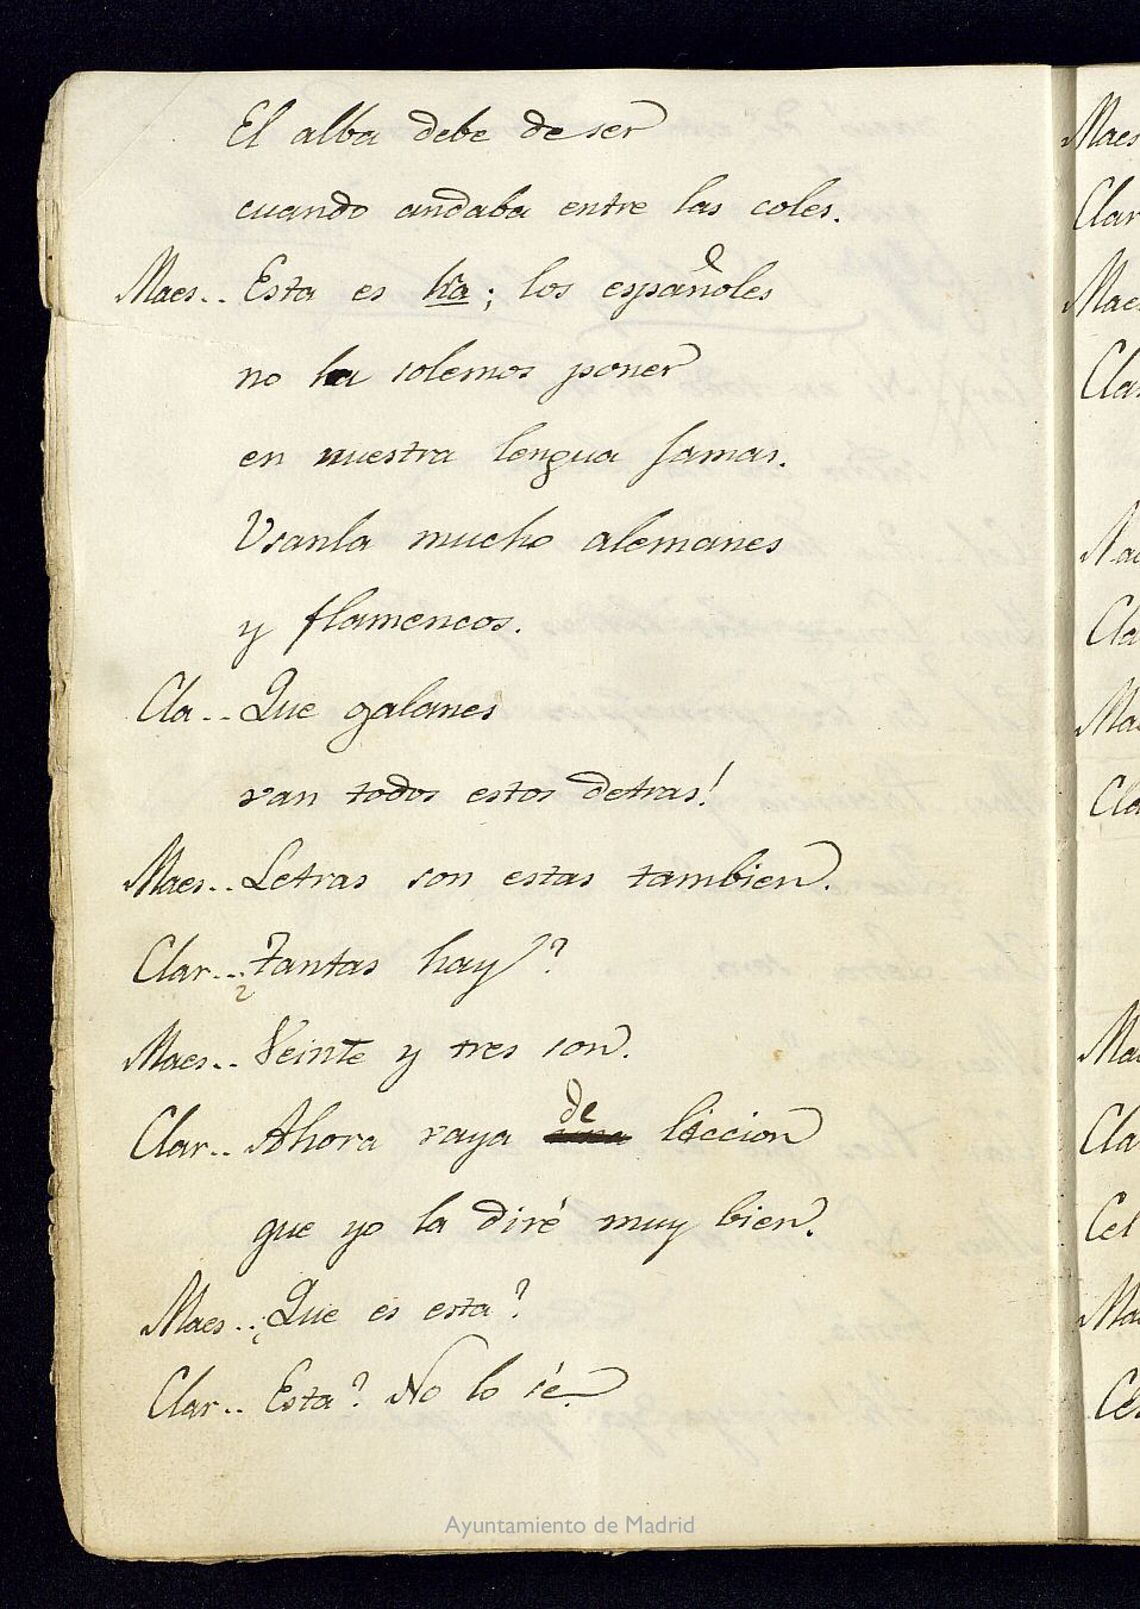 El alba debe de ser
cuando andaba entre las coles.
Maes.. Esta es ka; los españoles
no la solemos poner
en nuestra lengua jamas.
Usanla mucho alemanes
y flamencos.
Cla.. Que galanes
van todos estos detras!
Maes.. Letras son estas tambien.
Clar.. ¿Tantas hay?
Maes.. Veinte y tres son.
Clar.. Ahora vaya de liccion
que yo la diré muy bien.
Maes.. ¿Que es esta?
Clar.. Esta? No lo sé.
Maes
Clar
Maes
Clar
Cla
Ma
Cla
Ma
Cla
Cel
Ma
Ce
Ayuntamiento de Madrid